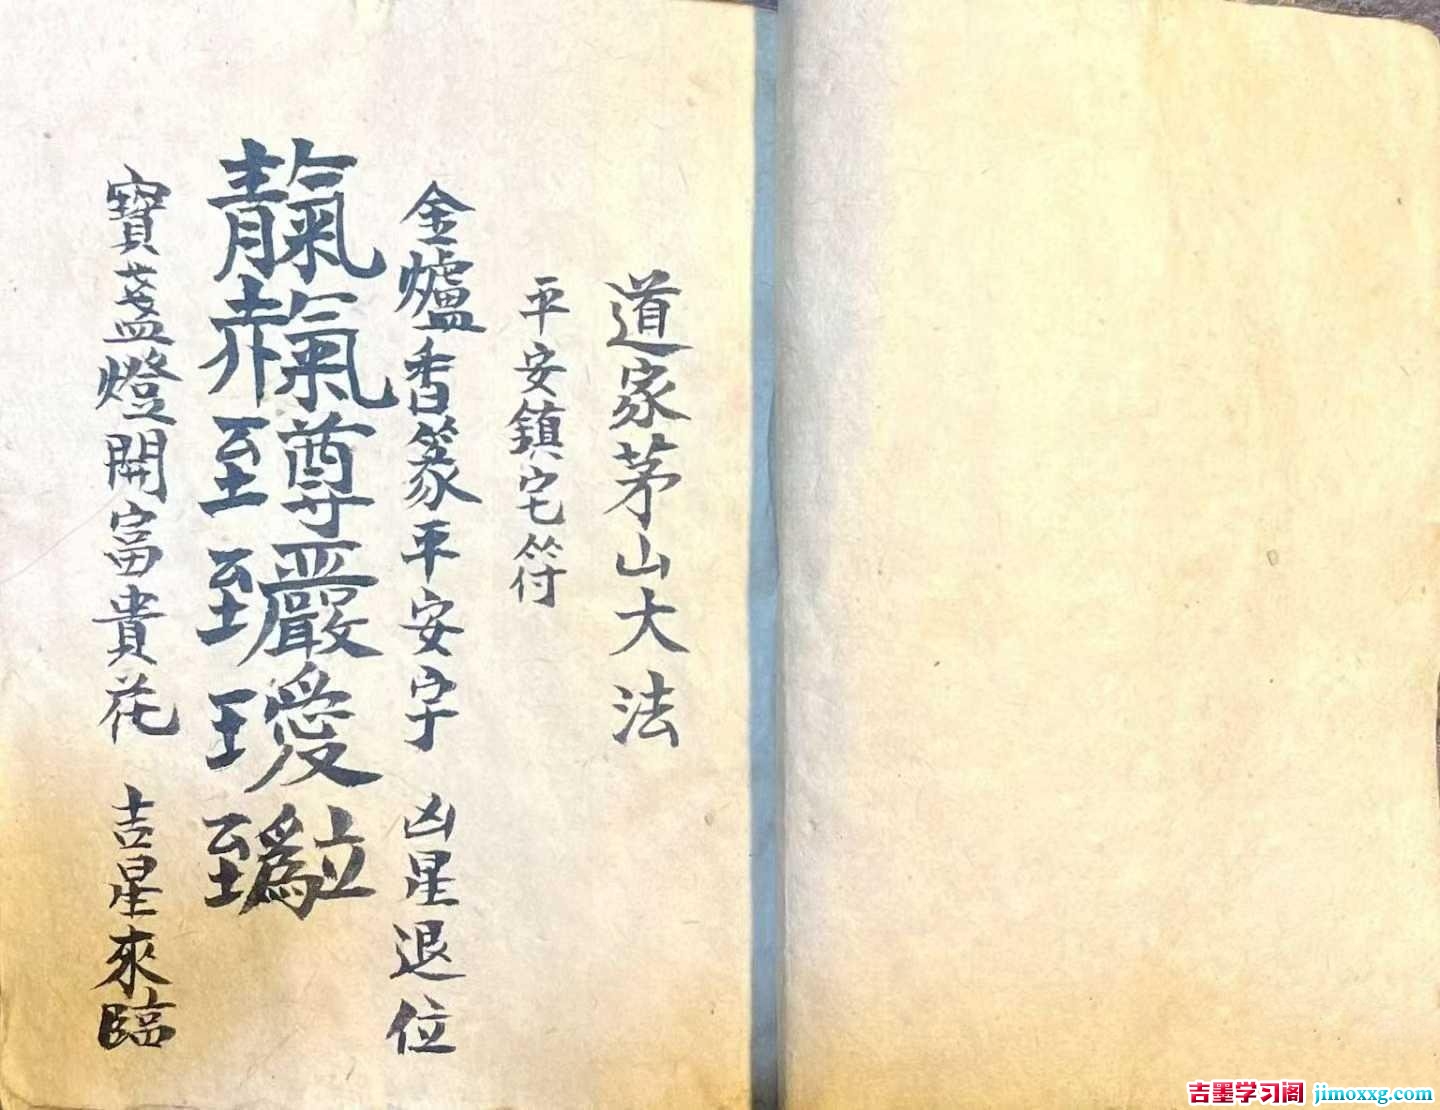 道家茅山大法
平安鎮宅符
金爐香篆平安字 凶星退位
寶盞燈開富貴花 吉星來臨
吉墨学习阁 jimoxxg.com